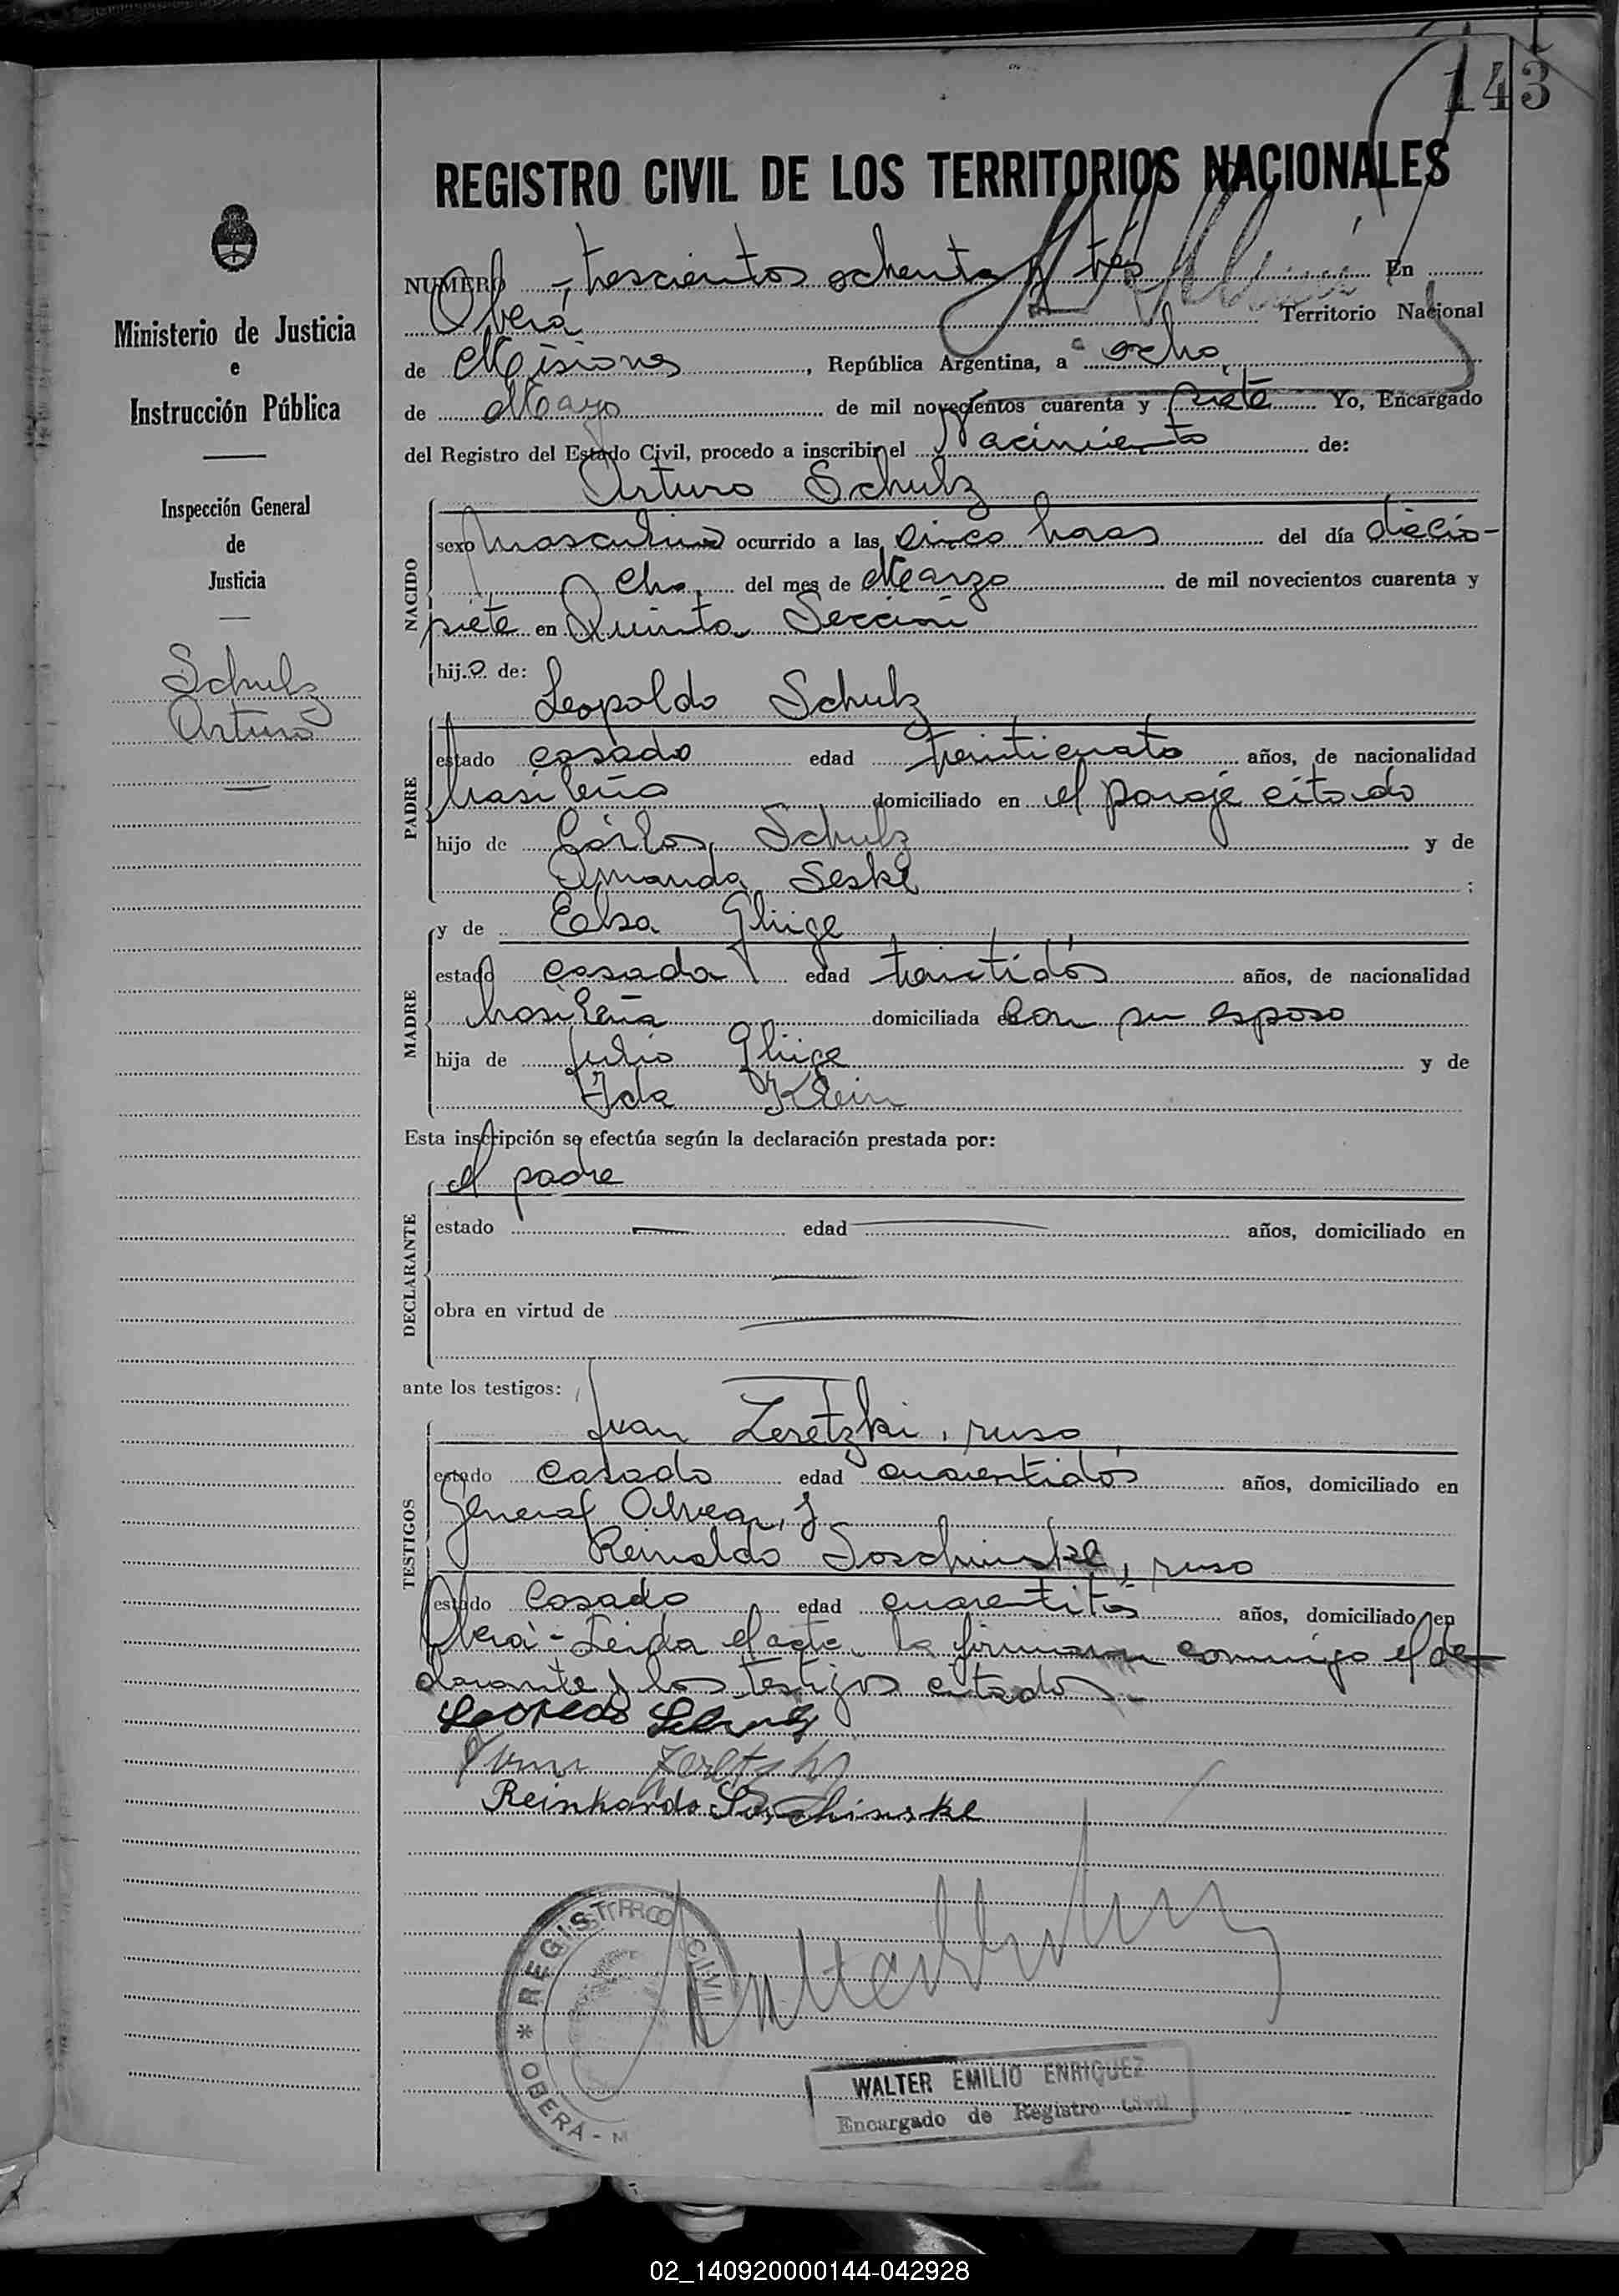 143
REGISTRO CIVIL DE LOS TERRITORIOS NACIONALES
Ministerio de Justicia
e
Instrucción Pública
Inspección General
de
Justicia
Schulz
Arturo
NUMERO - trescientos ochenta y tres En
Oberá Territorio Nacional
de Misiones, República Argentina, a ocho
de Mayo de mil novecientos cuarenta y siete Yo, Encargado
del Registro del Estado Civil, procedo a inscribir el Nacimiento de:
Arturo Schulz
NACIDO
sexo masculino ocurrido a las cinco horas del día diecio-
cho del mes de Marzo de mil novecientos cuarenta y
siete en Quinta Sección
hijo de:
Leopoldo Schulz
PADRE
estado casado edad treinticuatro años, de nacionalidad
brasileña domiciliado en el paraje citado
hijo de Cárlos Schulz y de
Amanda Seske;
MADRE
y de Elsa
estado casada edad treintidós años, de nacionalidad
brasileña domiciliada con su esposo
hija de Julio y de
Ida Klein
Esta inscripción se efectúa según la declaración prestada por:
el padre
DECLARANTE
estado edad años, domiciliado en
obra en virtud de
ante los testigos:
Juan Zeretzki, ruso,
TESTIGOS
estado casado edad cuarentidós años, domiciliado en
General Alvear, y
Reinaldo Soschinske, ruso
estado casado edad años, domiciliado en
Oberá - Leida el acta, la firman conmigo el de-
clarante y los testigos citados.-
Leopoldo Schulz
Reinhardo Soschinske
REGISTRO CIVIL
* OBERÁ - M
WALTER EMILIO ENRIQUEZ
Encargado de Registro Civil
02_140920000144-042928